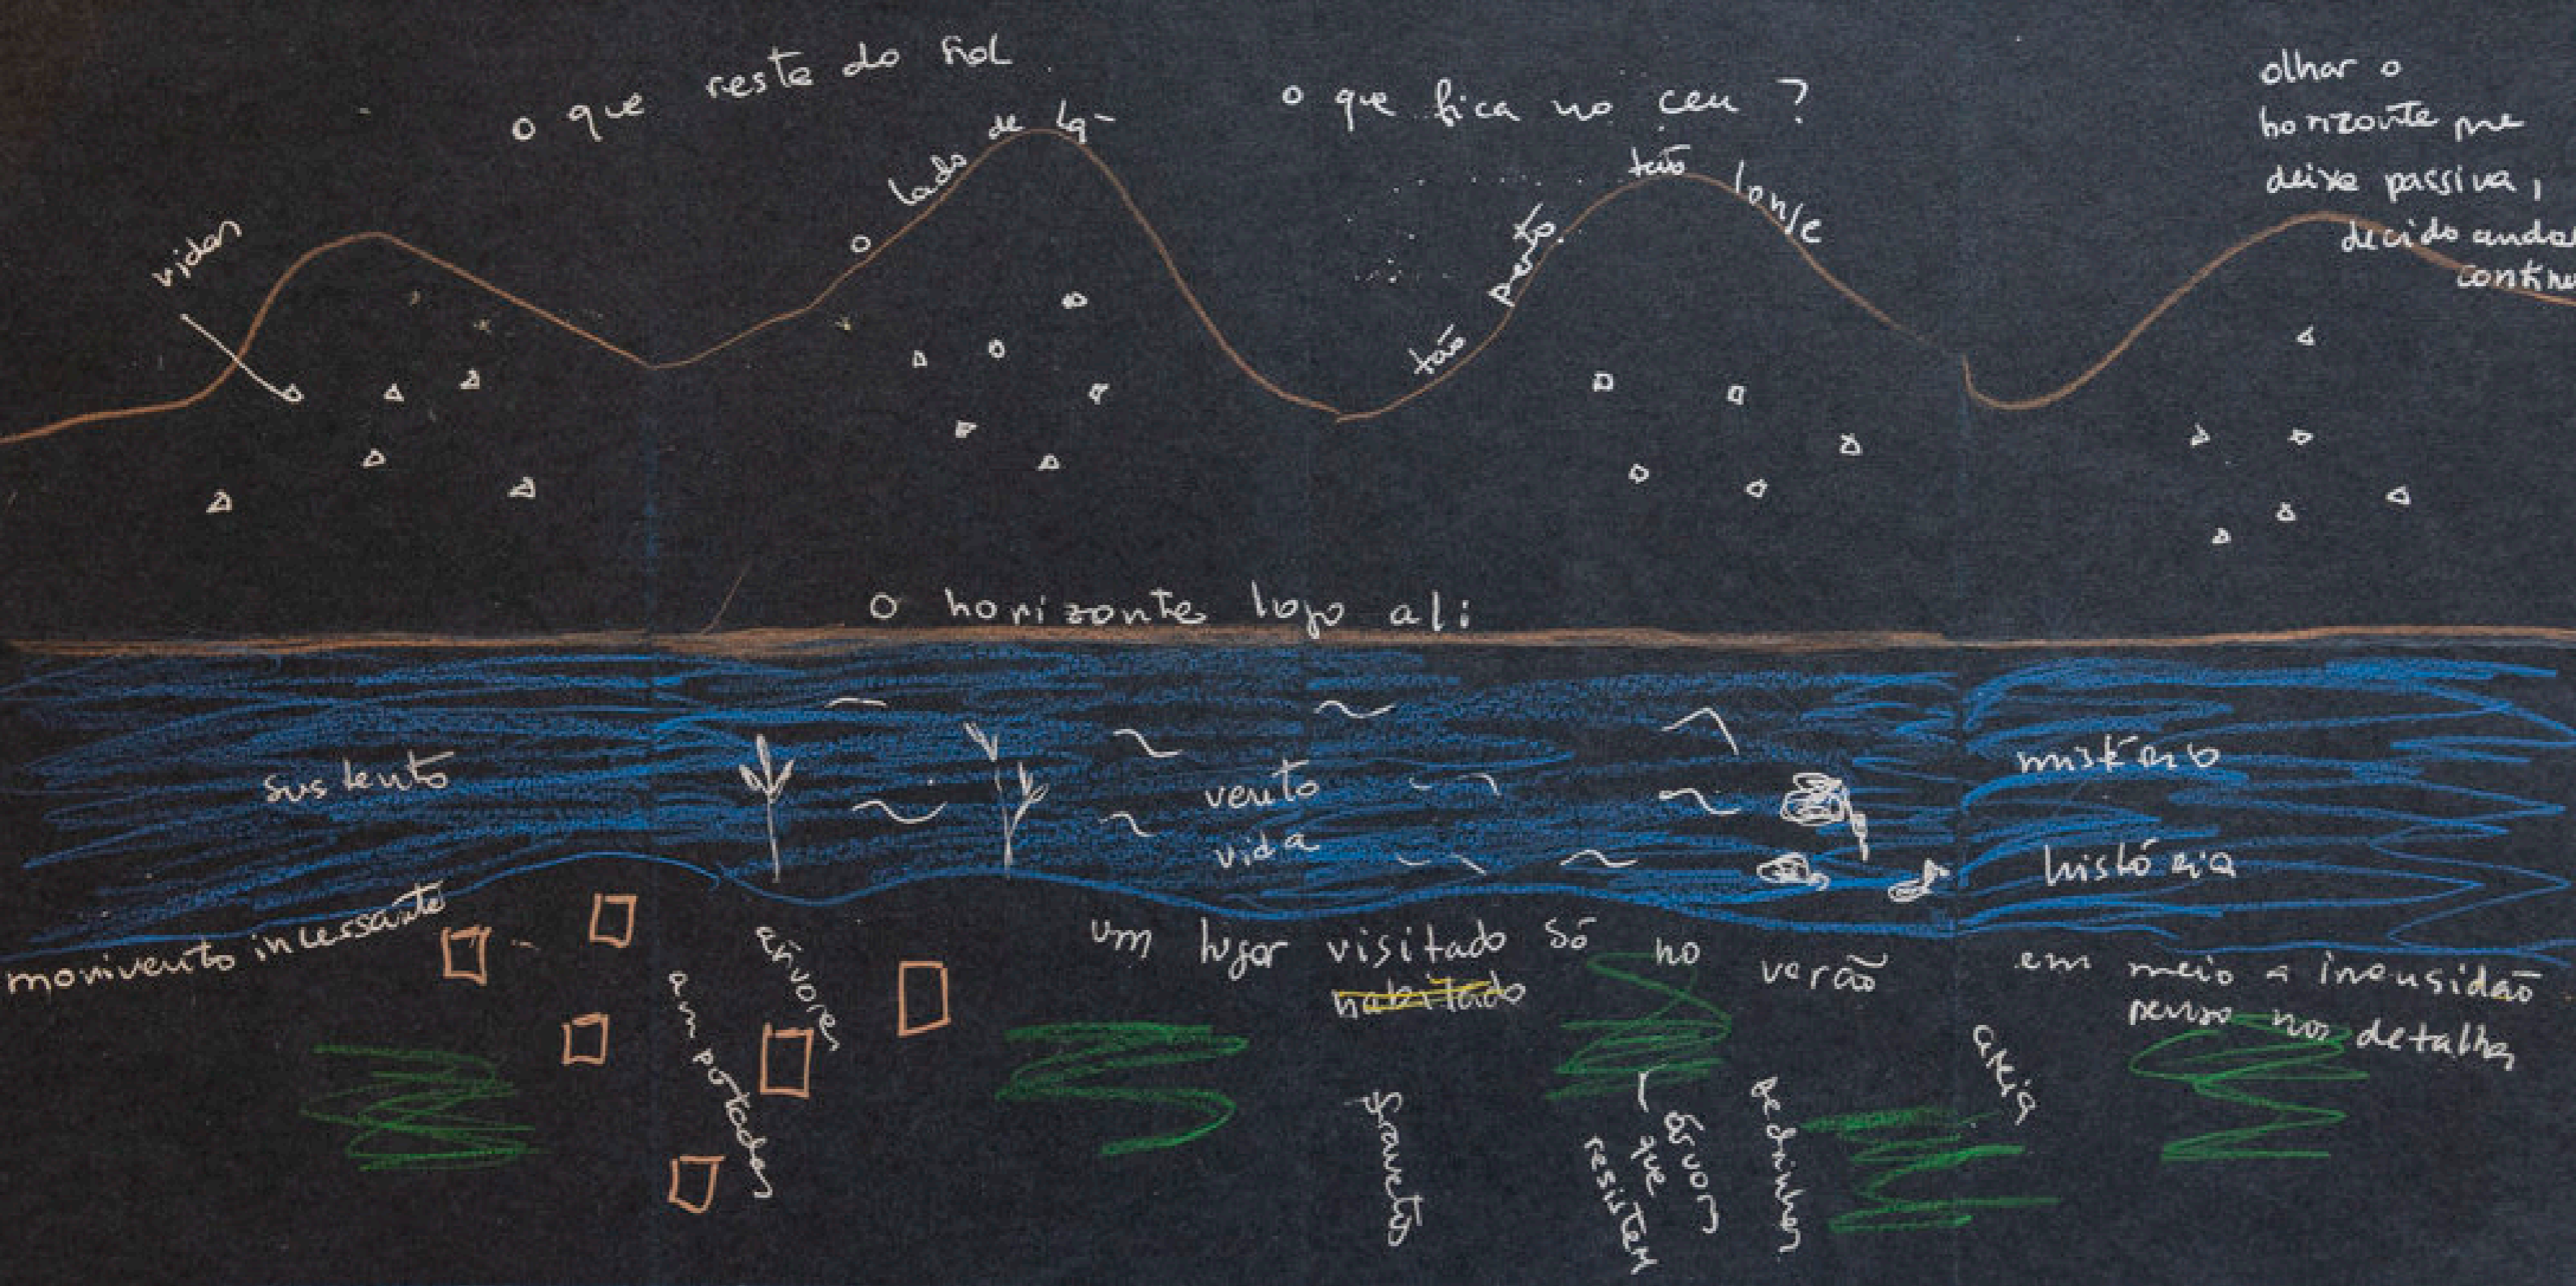 o que resta do sol
o que fica no ceu ?
olhar o
horizonte me
deixa passiva,
decido anda
continu
vidas
o lado de lá
tão perto. tão longe
o horizonte logo ali
sustento
vento
vida
mistério
história
movimento incessante
um lugar visitado só no verão
habitado
em meio a imensidão
penso nos detalhes
árvores
amputadas
gravetos
árvores
que
resistem
pedrinhas
areia